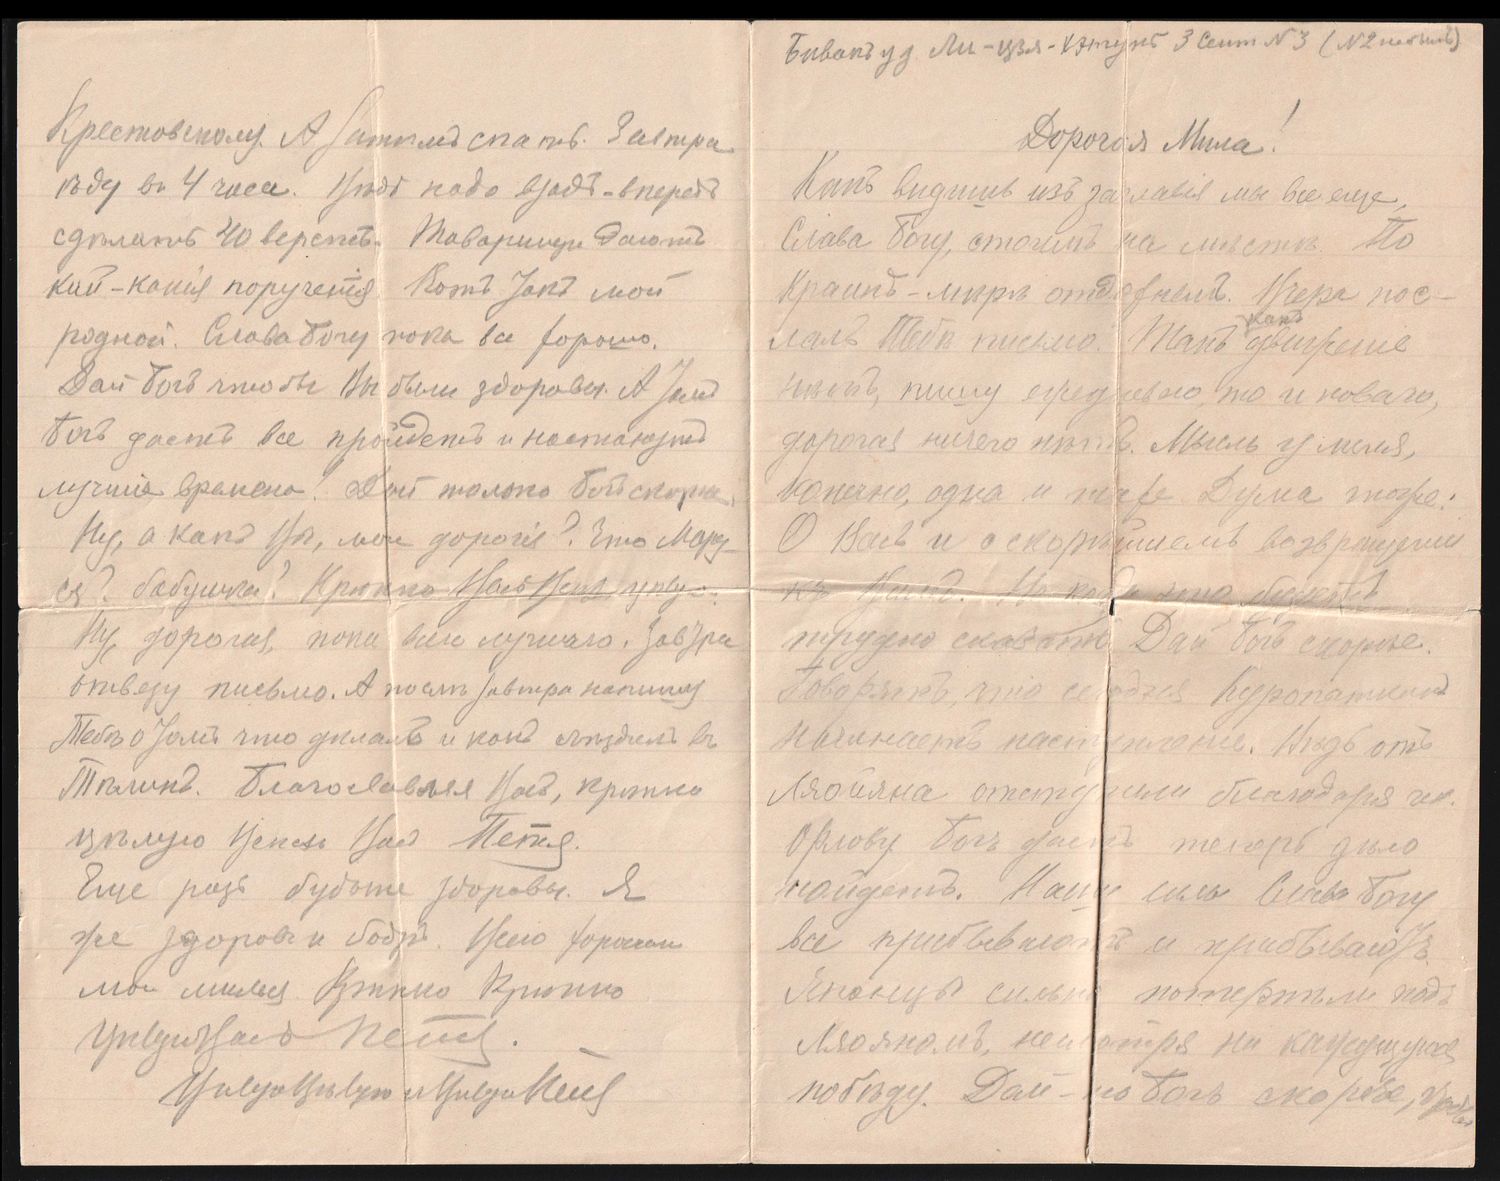 Бивакъ у д. Ли-цзя-хэтунь 3 Сент N 3 (N 2
Дорогая Мила!
Какъ видишь изъ заглавія мы все еще,
Слава Богу, стоимъ на мѣстѣ. По
крайнѣ-мѣрѣ отдохнемъ. Вчера пос-
лалъ Тебѣ письмо. Такъ какъ движенія
нѣтъ, пишу ежедневно, то и новаго,
дорогая ничего нѣтъ. Мысль у меня,
конечно, одна и таже Дума тоже:
О Васъ и о скорѣйшемъ возвращеніи
къ Вамъ. Но когда это будетъ
трудно сказать Дай Богъ скорѣе.
Говорятъ, что сегодня Куропаткинъ
начинаетъ наступленіе. Вѣдь отъ
Ляояна отступили благодаря ген.
Орлову Богъ дастъ теперь дѣло
пойдетъ. Наши силы Слава Богу
все прибываютъ и прибываютъ.
Японцы сильно потерпѣли подъ
Ляояномъ, несмотря на кажущуюся
побѣду. Дай-то Богъ скорѣе,
Крестовскому. А затѣмъ спать. Завтра
ѣду въ 4 часа. Вѣдь надо взадъ-впередъ
сдѣлать 40 верстъ. Товарищи даютъ
кой-какія порученія Вотъ такъ мой
родной. Слава Богу пока все хорошо.
Дай Богъ чтобы Вы были здоровы. А тамъ
Богъ дастъ все пройдетъ и настанутъ
лучшія времена! Дай только Богъ скорѣе.
Ну, а какъ Вы, мои дорогія? Что Мару-
ся? бабушка? Крѣпко Васъ Всѣхъ цѣлую.
Ну, дорогая, пока всего лучшаго. Завтра
отвезу письмо. А послѣ завтра напишу
Тебѣ о томъ что дѣлалъ и какъ съѣздилъ въ
Тѣлинъ. Благославляя Васъ, крѣпко
цѣлую Всѣхъ Васъ Петя.
Еще разъ будьте здоровы. Я
же здоровъ и бодръ. Всего хорошаго
мои милыя Крѣпко Крѣпко
Цѣлую Васъ Петя.
Цѣлую Цѣлую и Цѣлую Петя